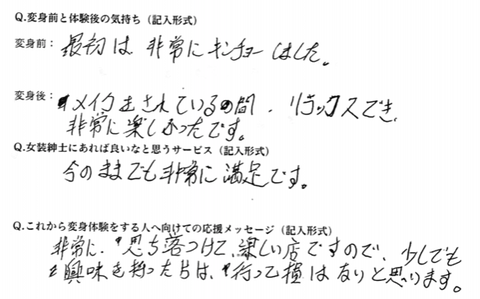 Q.変身前と体験後の気持ち（記入形式）
変身前： 最初は 非常にキンチョーしました。
変身後： メイクをされている間、リラックスでき
非常に楽しかったです。
Q.女装紳士にあれば良いなと思うサービス（記入形式）
今のままでも非常に満足です。
Q.これから変身体験をする人へ向けての応援メッセージ（記入形式）
非常に、落ちつけて、楽しい店ですので、少しでも
興味を持った方は、行って損はないと思います。